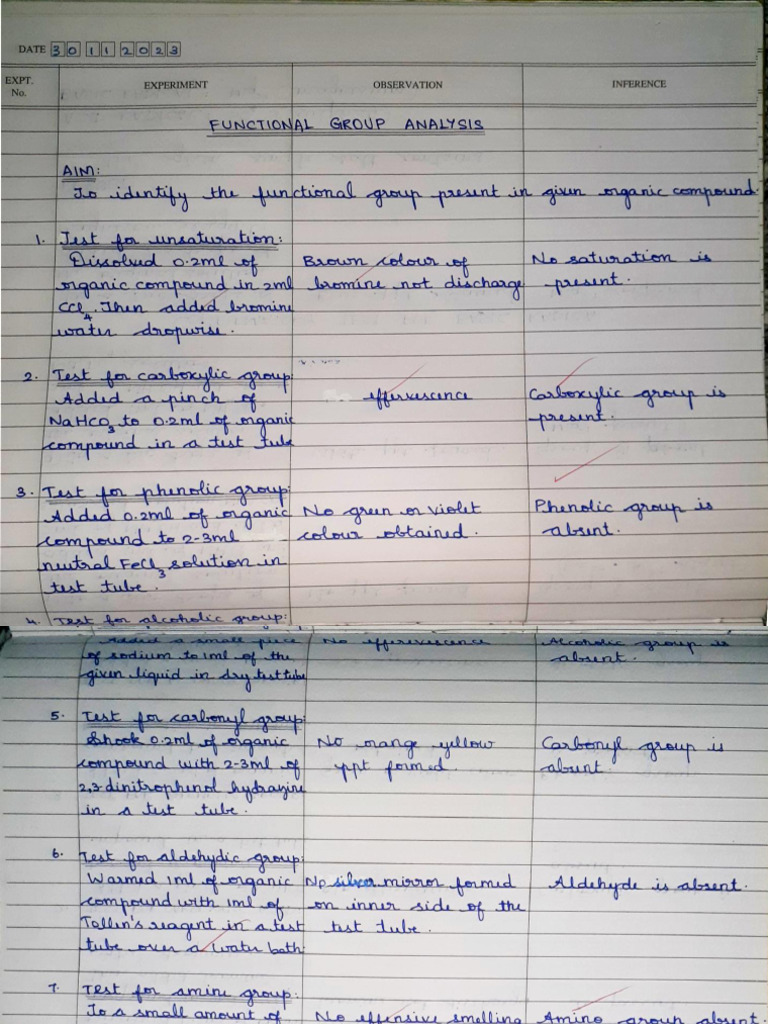 DATE 30 11 2023
EXPT. No. EXPERIMENT OBSERVATION INFERENCE
FUNCTIONAL GROUP ANALYSIS
AIM:
To identify the functional group present in given organic compound.
1. Test for unsaturation:
Dissolved 0.2ml of Brown colour of No saturation is
organic compound in 2ml bromine not discharge present.
CCl4. Then added bromine
water dropwise.
2. Test for carboxylic group:
Added a pinch of effervescence Carboxylic group is
NaHCO3 to 0.2ml of organic present.
compound in a test tube
3. Test for phenolic group:
Added 0.2ml of organic No green or violet Phenolic group is
compound to 2-3ml colour obtained. absent.
neutral FeCl3 solution in
test tube.
4. Test for alcoholic group:
Added a small piece No efferevescence Alcoholic group is
of sodium to 1ml of the absent.
given liquid in dry test tube
5. Test for carbonyl group:
Shook 0.2ml of organic No orange yellow Carbonyl group is
compound with 2-3ml of ppt formed absent
2,3-dinitrophenol hydrazine
in a test tube.
6. Test for aldehydic group:
Warmed 1ml of organic No silver mirror formed Aldehyde is absent.
compound with 1ml of on inner side of the
Tollen's reagent in a test test tube.
tube over a water bath
7. Test for amine group:
To a small amount of No offensive smelling Amino group absent.